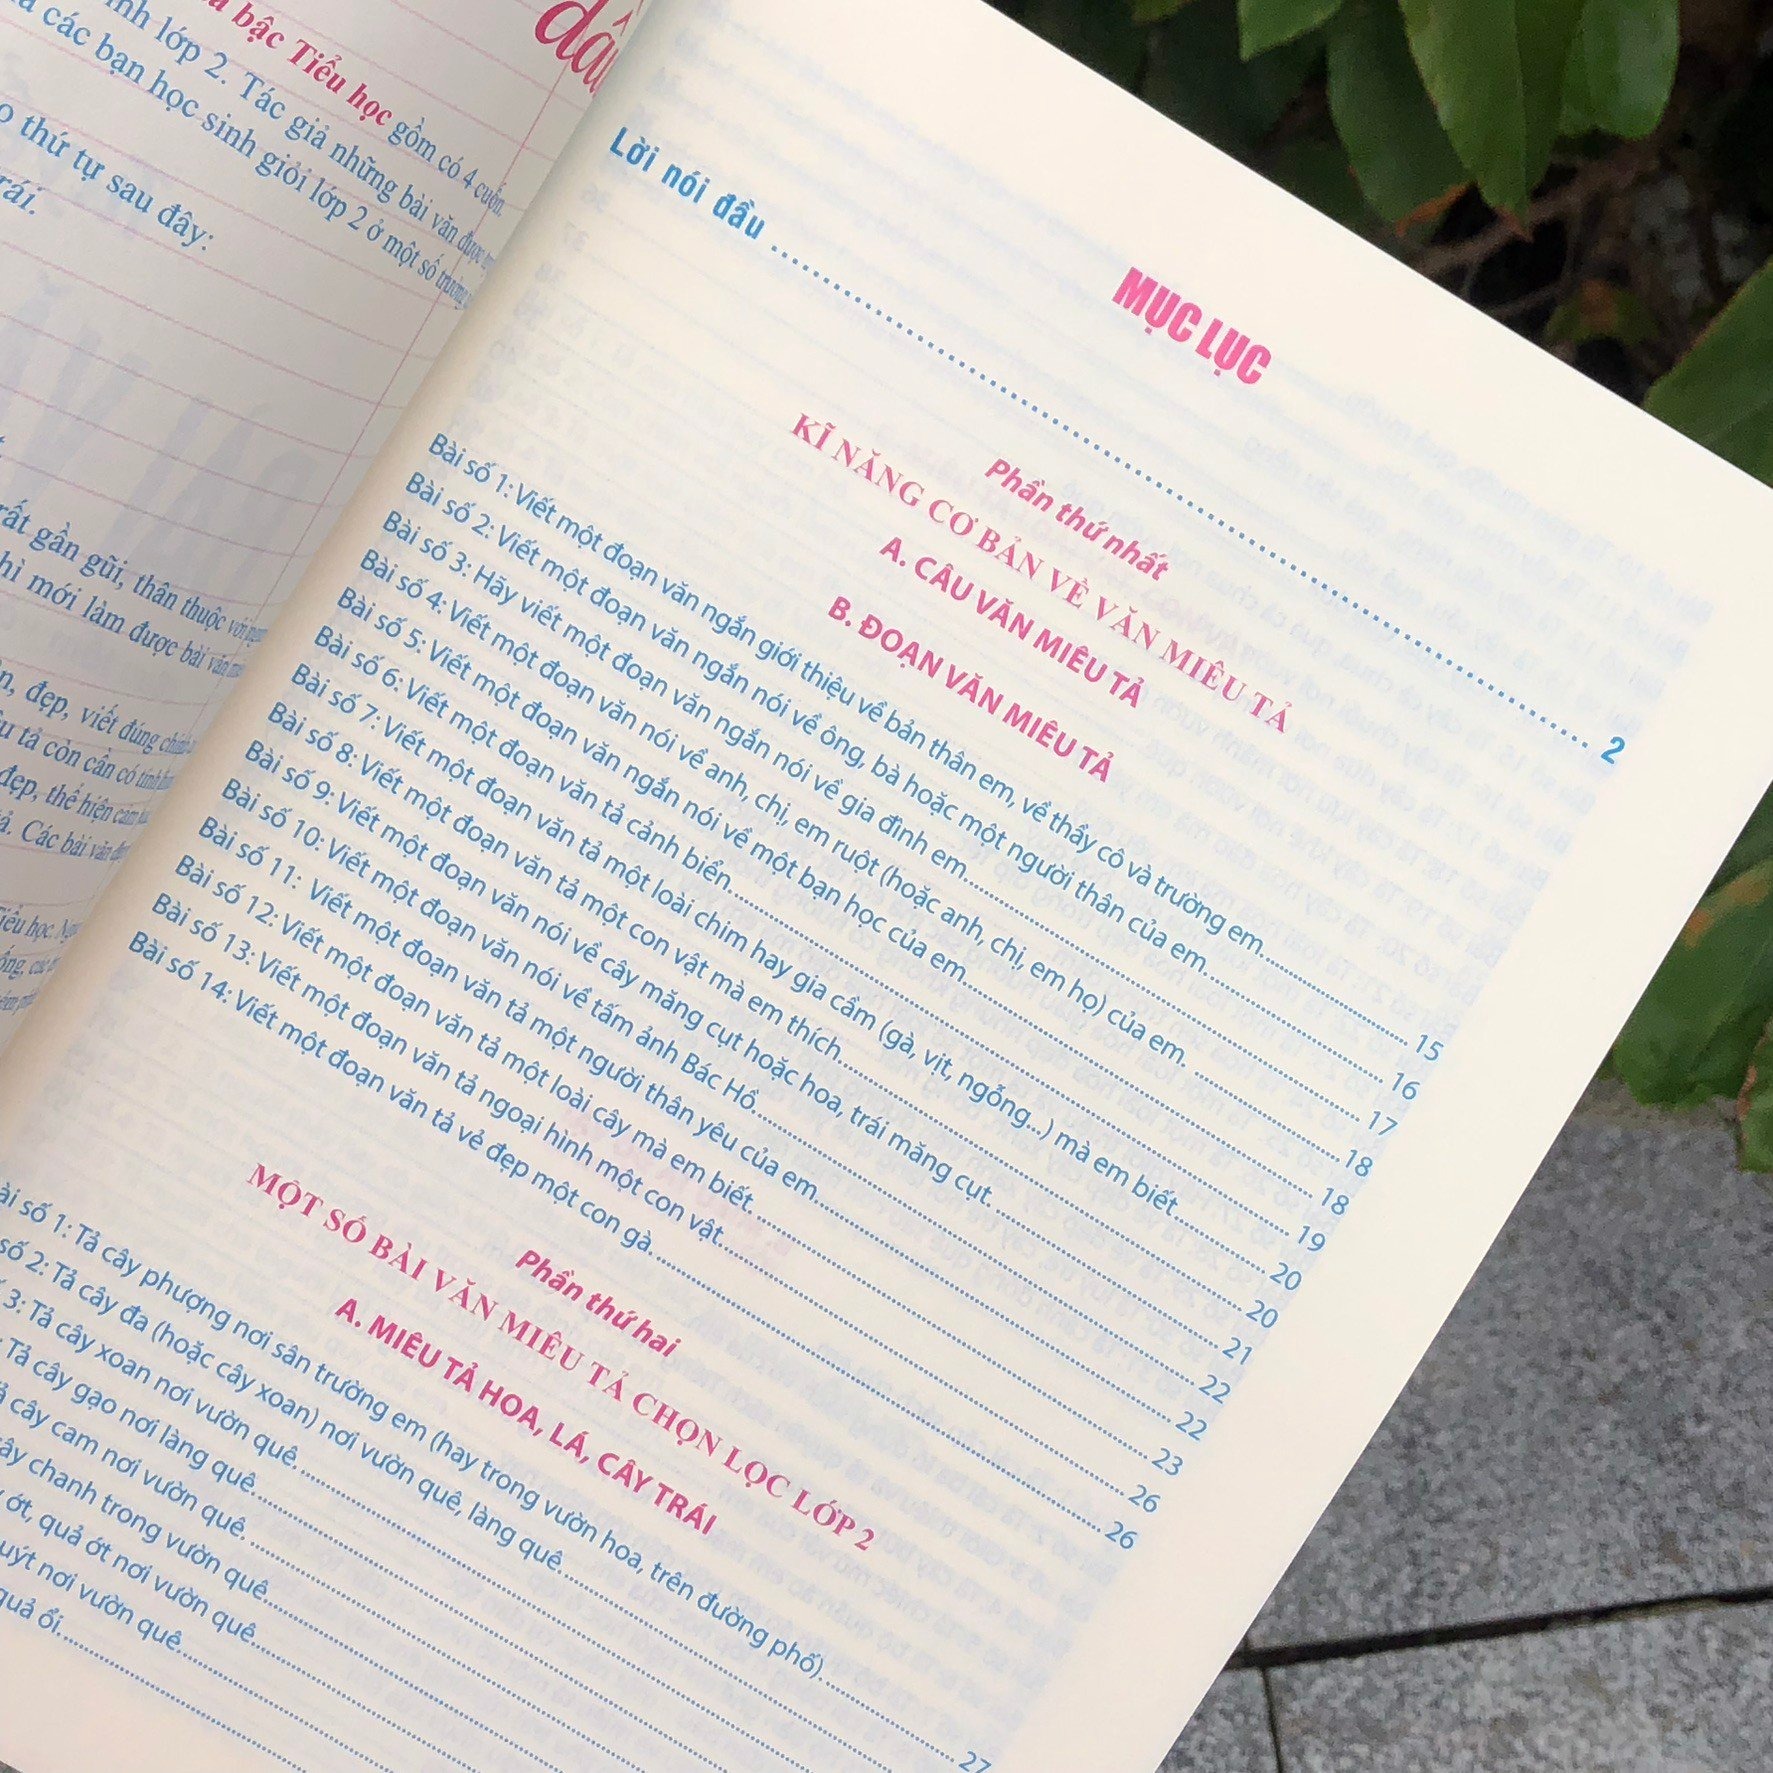 dấu
bậc Tiểu học gồm có 4 cuốn.
lớp 2. Tác giả những bài văn được
các bạn học sinh giỏi lớp 2 ở một số trường
thứ tự sau đây:
rất gần gũi, thân thuộc với
mới làm được bài văn
đẹp, viết đúng
tả còn cần có tính
đẹp, thể hiện cảm
Các bài văn
Tiểu học.
MỤC LỤC
Lời nói đầu 2
Phần thứ nhất
KĨ NĂNG CƠ BẢN VỀ VĂN MIÊU TẢ
A. CÂU VĂN MIÊU TẢ
B. ĐOẠN VĂN MIÊU TẢ
Bài số 1: Viết một đoạn văn ngắn giới thiệu về bản thân em, về thầy cô và trường em. 15
Bài số 2: Viết một đoạn văn ngắn nói về ông, bà hoặc một người thân của em. 16
Bài số 3: Hãy viết một đoạn văn ngắn nói về gia đình em. 17
Bài số 4: Viết một đoạn văn nói về anh, chị, em ruột (hoặc anh, chị, em họ) của em. 18
Bài số 5: Viết một đoạn văn ngắn nói về một bạn học của em. 18
Bài số 6: Viết một đoạn văn tả cảnh biển. 19
Bài số 7: Viết một đoạn văn tả một loài chim hay gia cầm (gà, vịt, ngỗng...) mà em biết. 20
Bài số 8: Viết một đoạn văn tả một con vật mà em thích. 20
Bài số 9: Viết một đoạn văn nói về cây măng cụt hoặc hoa, trái măng cụt. 21
Bài số 10: Viết một đoạn văn nói về tấm ảnh Bác Hồ. 22
Bài số 11: Viết một đoạn văn tả một người thân yêu của em. 22
Bài số 12: Viết một đoạn văn tả một loài cây mà em biết. 23
Bài số 13: Viết một đoạn văn tả ngoại hình một con vật. 26
Bài số 14: Viết một đoạn văn tả vẻ đẹp một con gà. 26
Phần thứ hai
MỘT SỐ BÀI VĂN MIÊU TẢ CHỌN LỌC LỚP 2
A. MIÊU TẢ HOA, LÁ, CÂY TRÁI
số 1: Tả cây phượng nơi sân trường em (hay trong vườn hoa, trên đường phố). 27
số 2: Tả cây đa (hoặc cây xoan) nơi vườn quê, làng quê.
3: Tả cây xoan nơi vườn quê.
Tả cây gạo nơi làng quê.
cây cam nơi vườn quê.
cây chanh trong vườn quê.
ớt, quả ớt nơi vườn quê.
nơi vườn quê.
quả ổi.